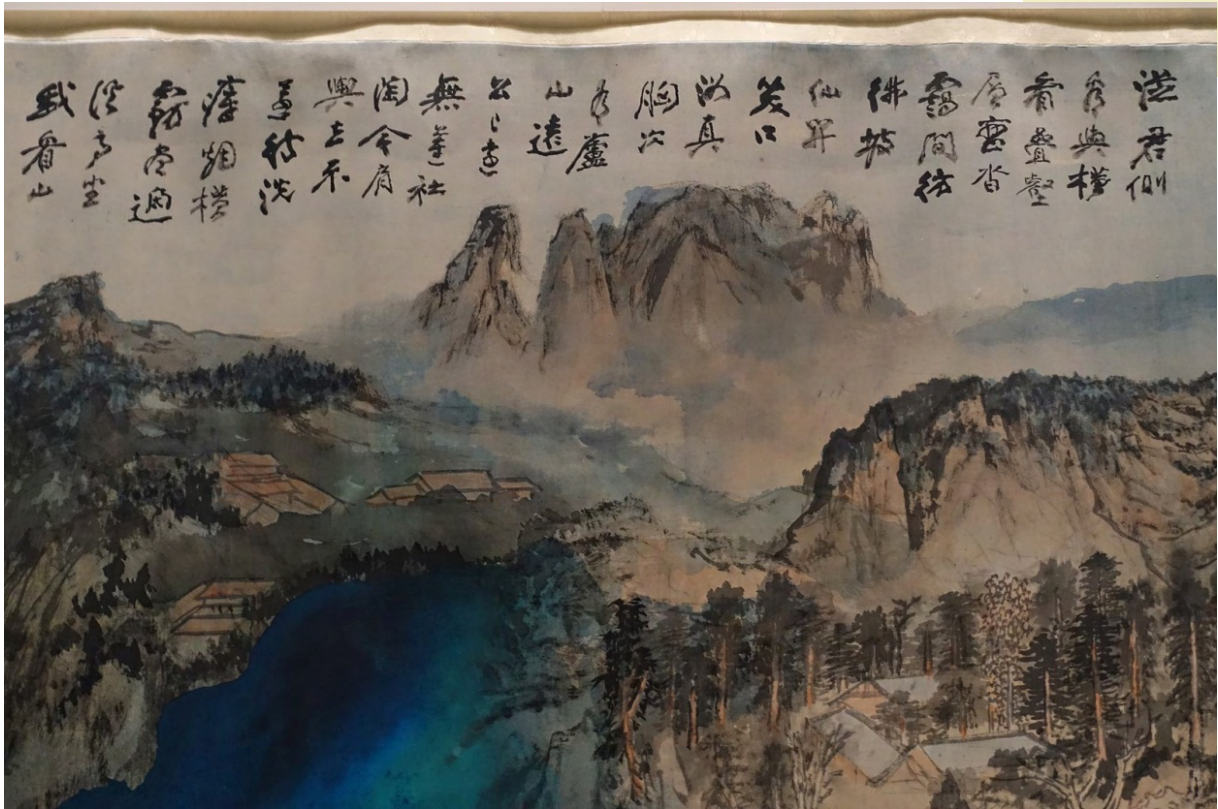 從君側
看與橫
看疊壑
層巒杳
靄間彷
彿坡
仙開
笑口
汝真
胸次
有廬
山遠
公已遠
無蓮社
陶令肩
輿去不
還待洗
瘴煙橫
霧盡過
溪亭坐
我看山